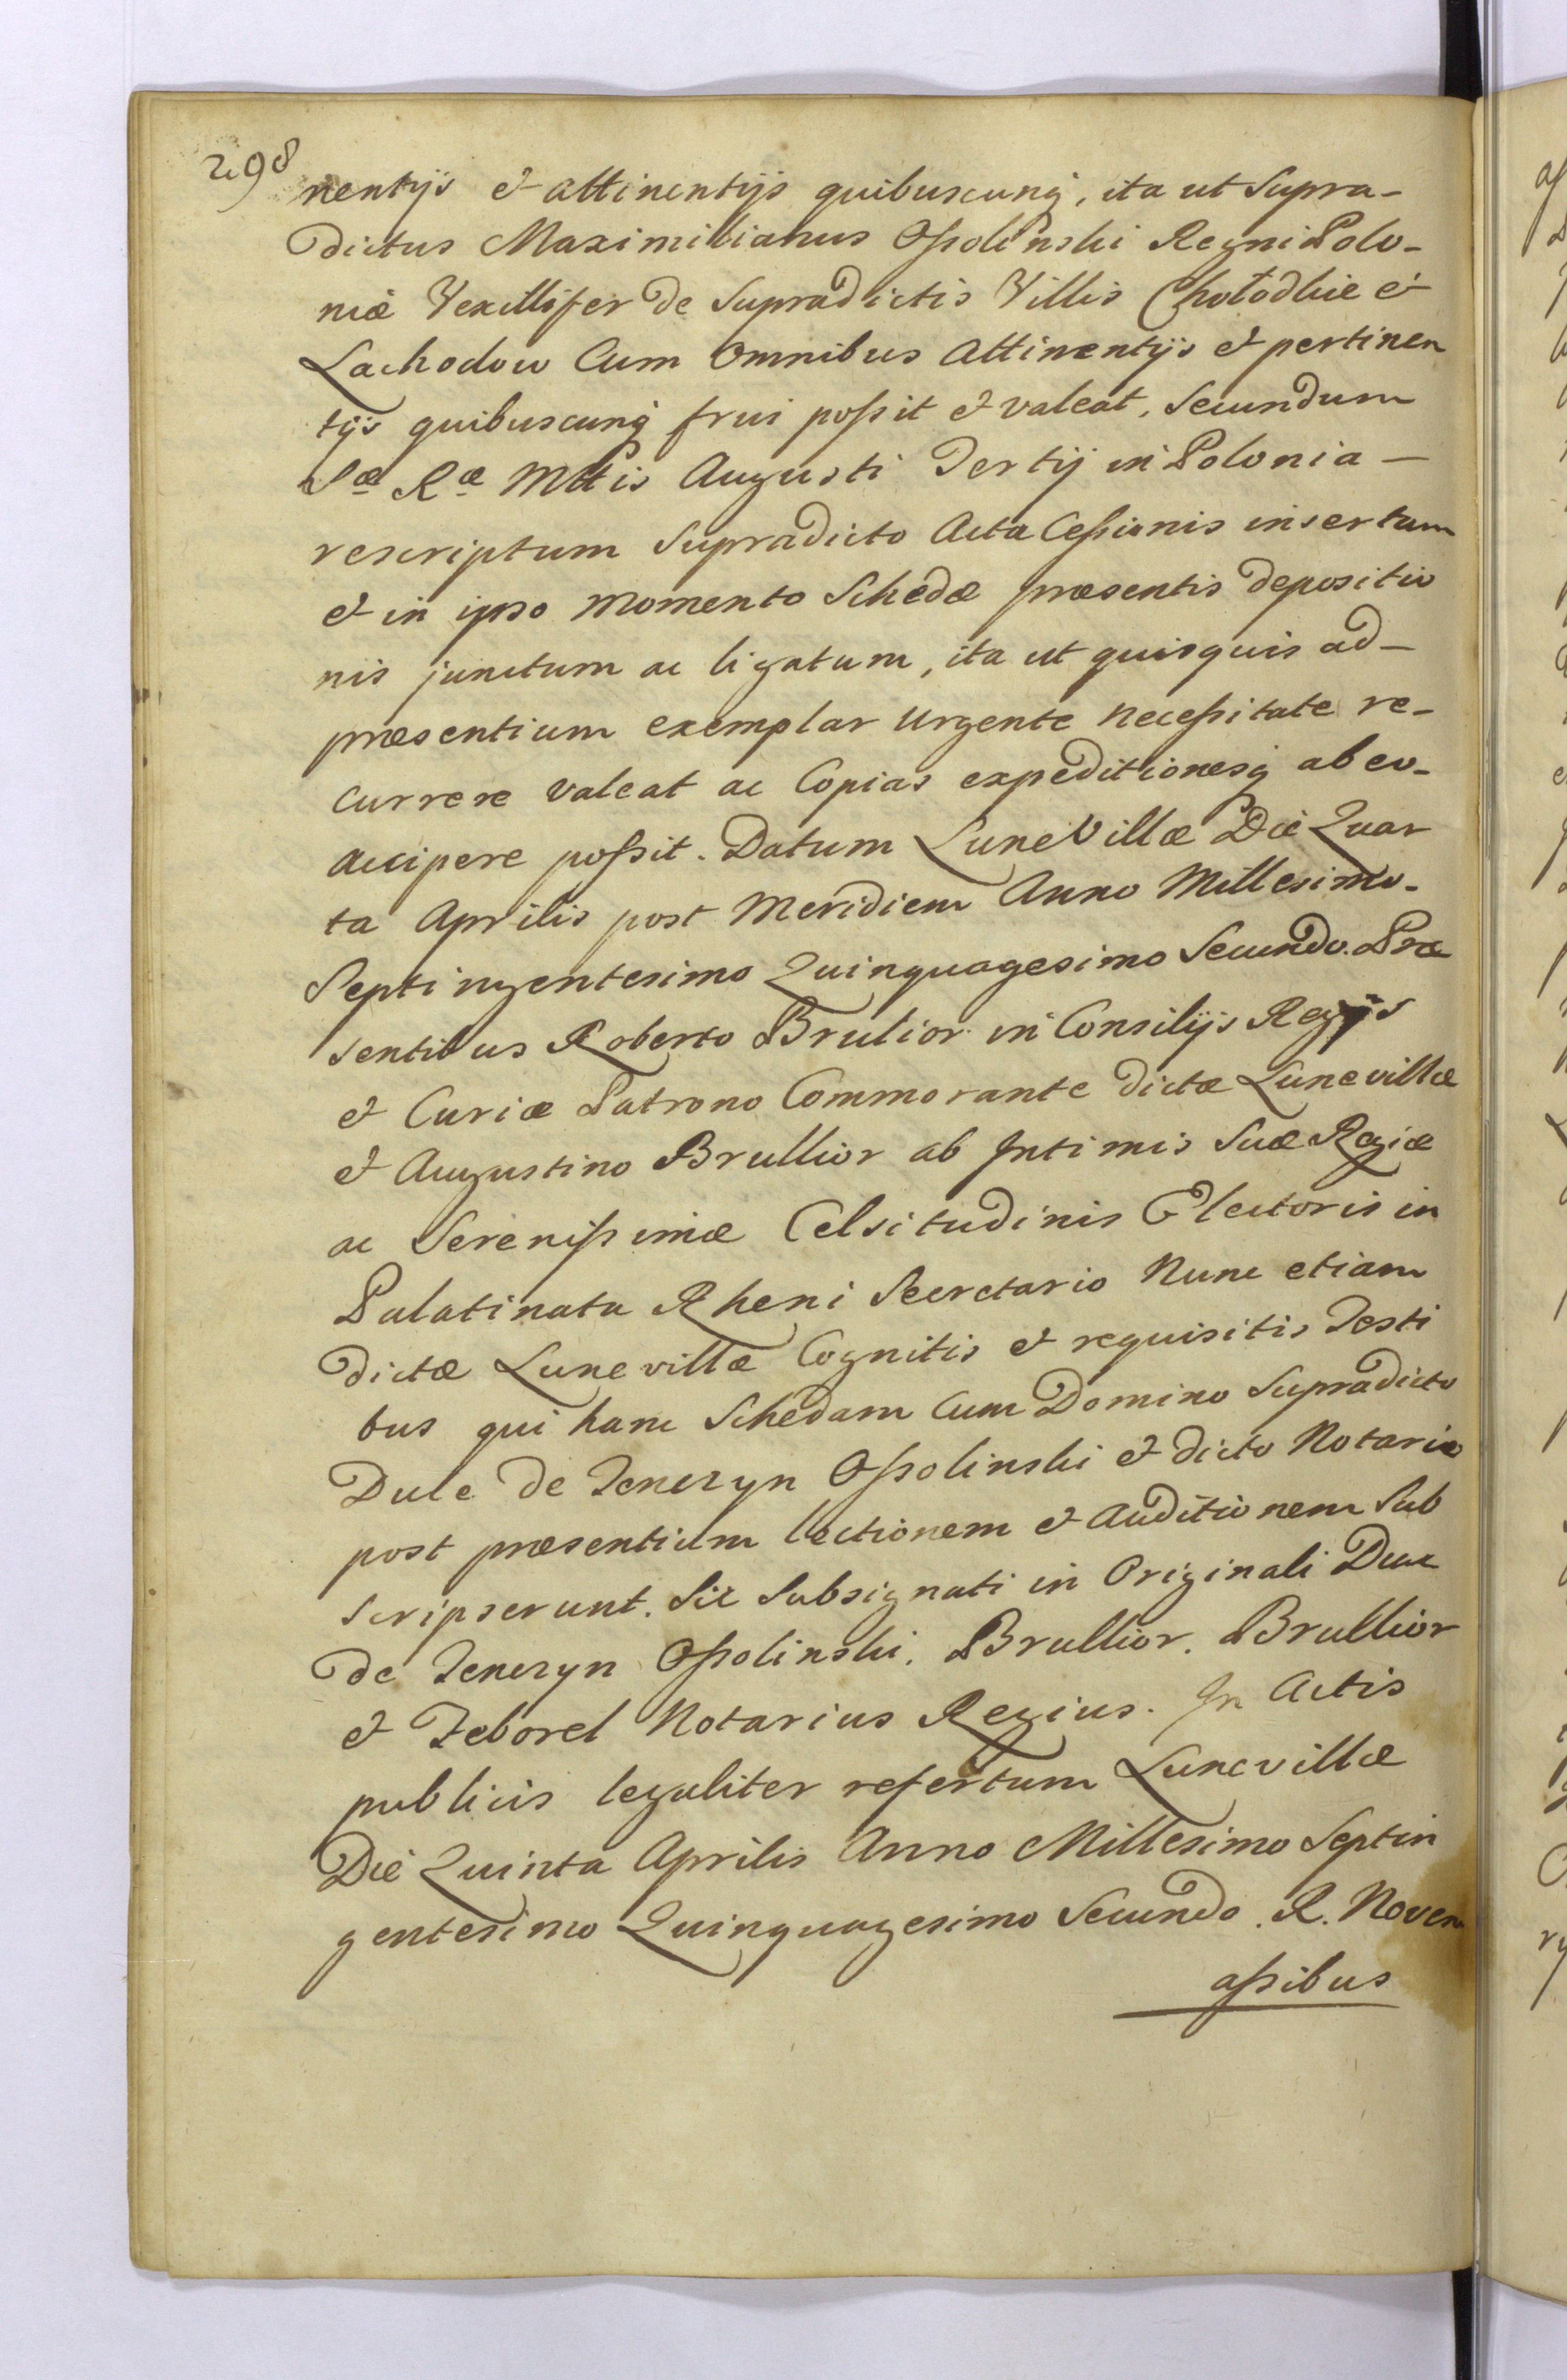 298
nentijs & attinentijs quibuscunq, ita ut Supra-
dictus Maximilianus Ossolinski Regni Polo-
niæ Vexillifer de Supradictis Villis Chołodkie &
Lachodow Cum Omnibus Attinentijs & pertinen
tijs quibuscunq frui possit & valeat, Secundum
Sæ Ræ Mttis Augusti Tertij in Polonia -
rescriptum Supradicto Acta Cessionis insertum
& in ipso Momento Schedæ præsentis depositio
nis junctum ac ligatum, ita ut quisquis ad -
præsentium exemplar Urgente Necessitate re-
currere Valeat ac Copias expeditionesq ab eo-
accipere possit. Datum LuneVillæ Die Quar
ta Aprilis post Meridiem Anno Millesimo-
Septingentesimo Quinquagesimo Secundo. Præ
sentibus Roberto Brulior in Consilijs Regijs
& Curiæ Patrono Commorante dictæ Lunevillæ
& Augustino Brullior ab Intimis Suæ Regiæ
ac Serenissimæ Celsitudinis Electoris in
Palatinatu Rheni Secretario Nunc etiam
dictæ Lunevillæ Cognitis & requisitis Testi
bus qui hanc Schedam Cum Domino Supradicto
Duce de Tenczyn Ossolinski & dicto Notario
post præsentium lectionem & Auditionem Sub
scripserunt. Sic Subsignati in Originali Dux
de Tenczyn Ossolinski. Brullior. Brullior
& Feborel Notarius Regius. In Actis
publicis legaliter refertum Lunevillæ
Die Quinta Aprilis Anno Millesimo Septin
gentesimo Quinquagesimo Secundo. R. Novem
assibus